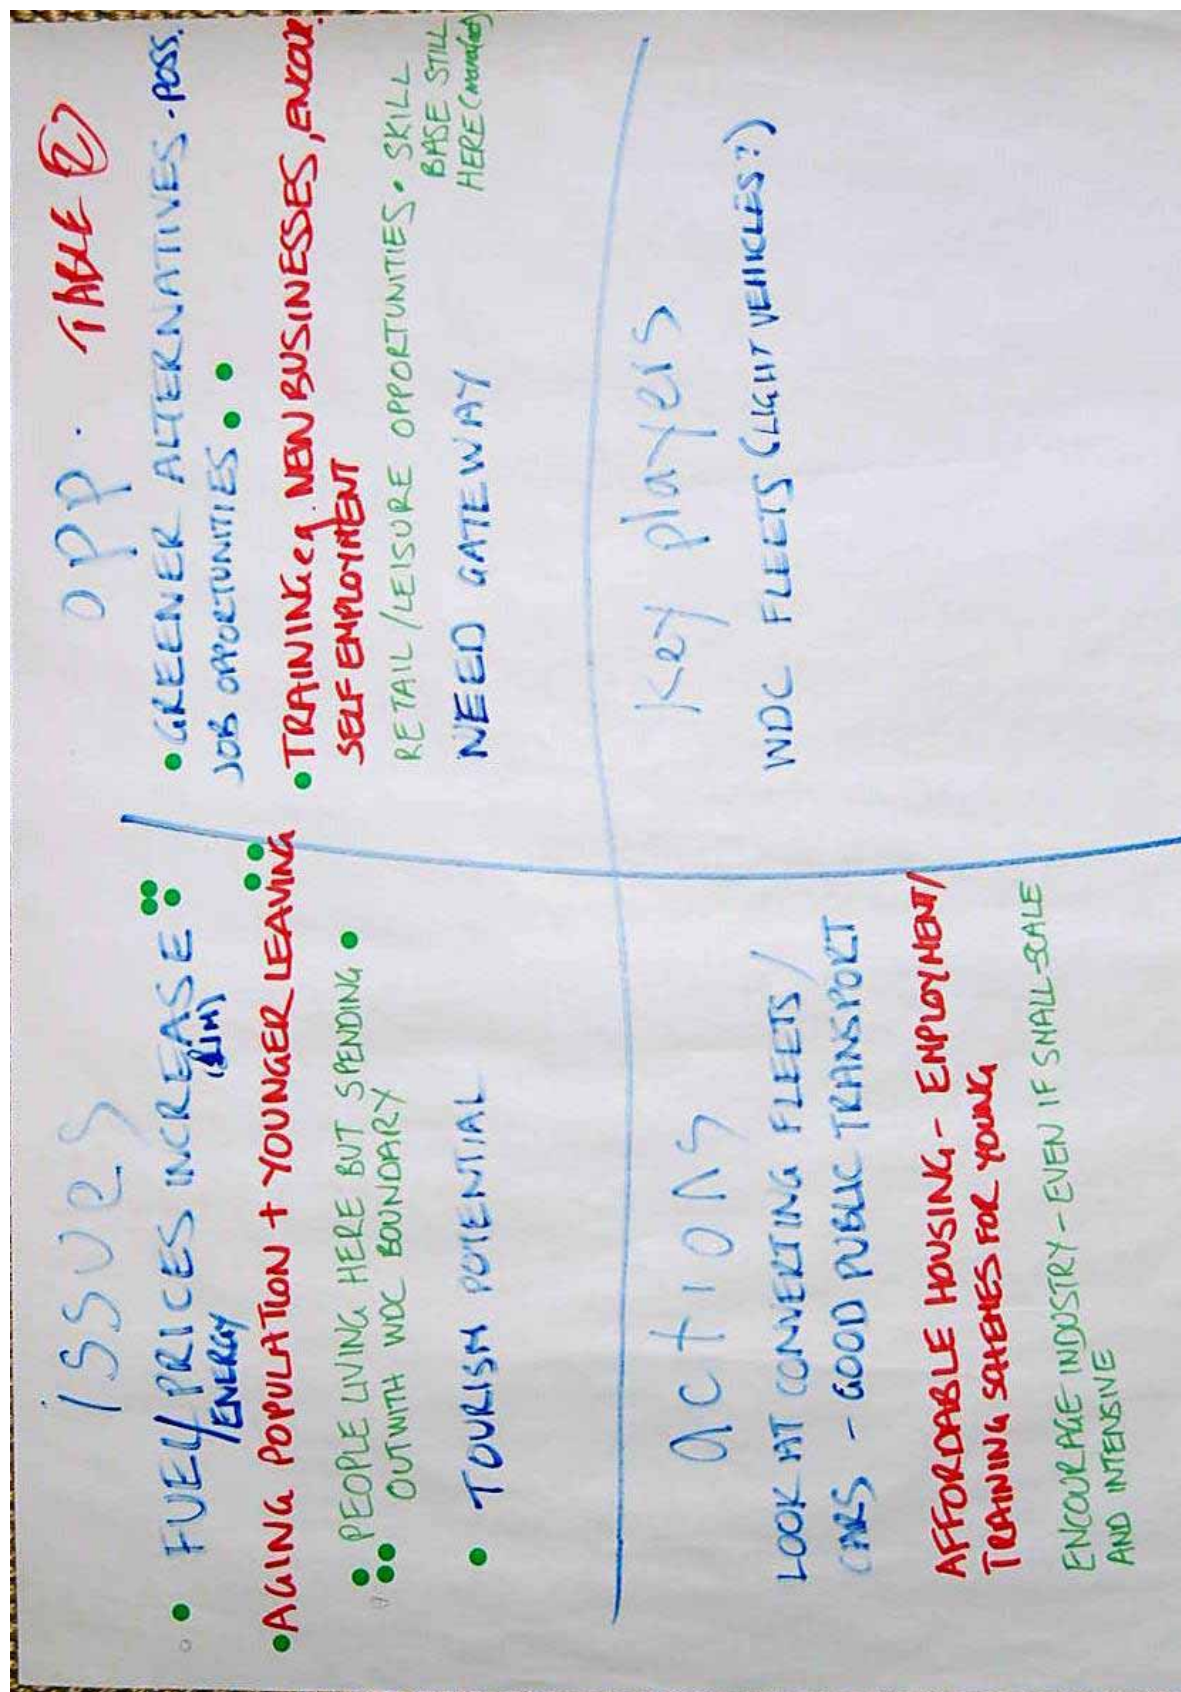 issues
• FUEL/PRICES INCREASE
/ENERGY
• AGING POPULATION + YOUNGER LEAVING
PEOPLE LIVING HERE BUT SPENDING
OUTWITH WDC BOUNDARY
• TOURISM POTENTIAL
OPP. TABLE 2
• GREENER ALTERNATIVES • POSS.
JOB OPPORTUNITIES
• TRAINING eg. NEW BUSINESSES, ENCOUR.
SELF EMPLOYMENT
RETAIL/LEISURE OPPORTUNITIES • SKILL
BASE STILL
HERE
NEED GATEWAY
actions
LOOK AT CONVERTING FLEETS/
CARS - GOOD PUBLIC TRANSPORT
AFFORDABLE HOUSING - EMPLOYMENT/
TRAINING SCHEMES FOR YOUNG
ENCOURAGE INDUSTRY - EVEN IF SMALL-SCALE
AND INTENSIVE
Key players
WDC FLEETS (LIGHT VEHICLES?)